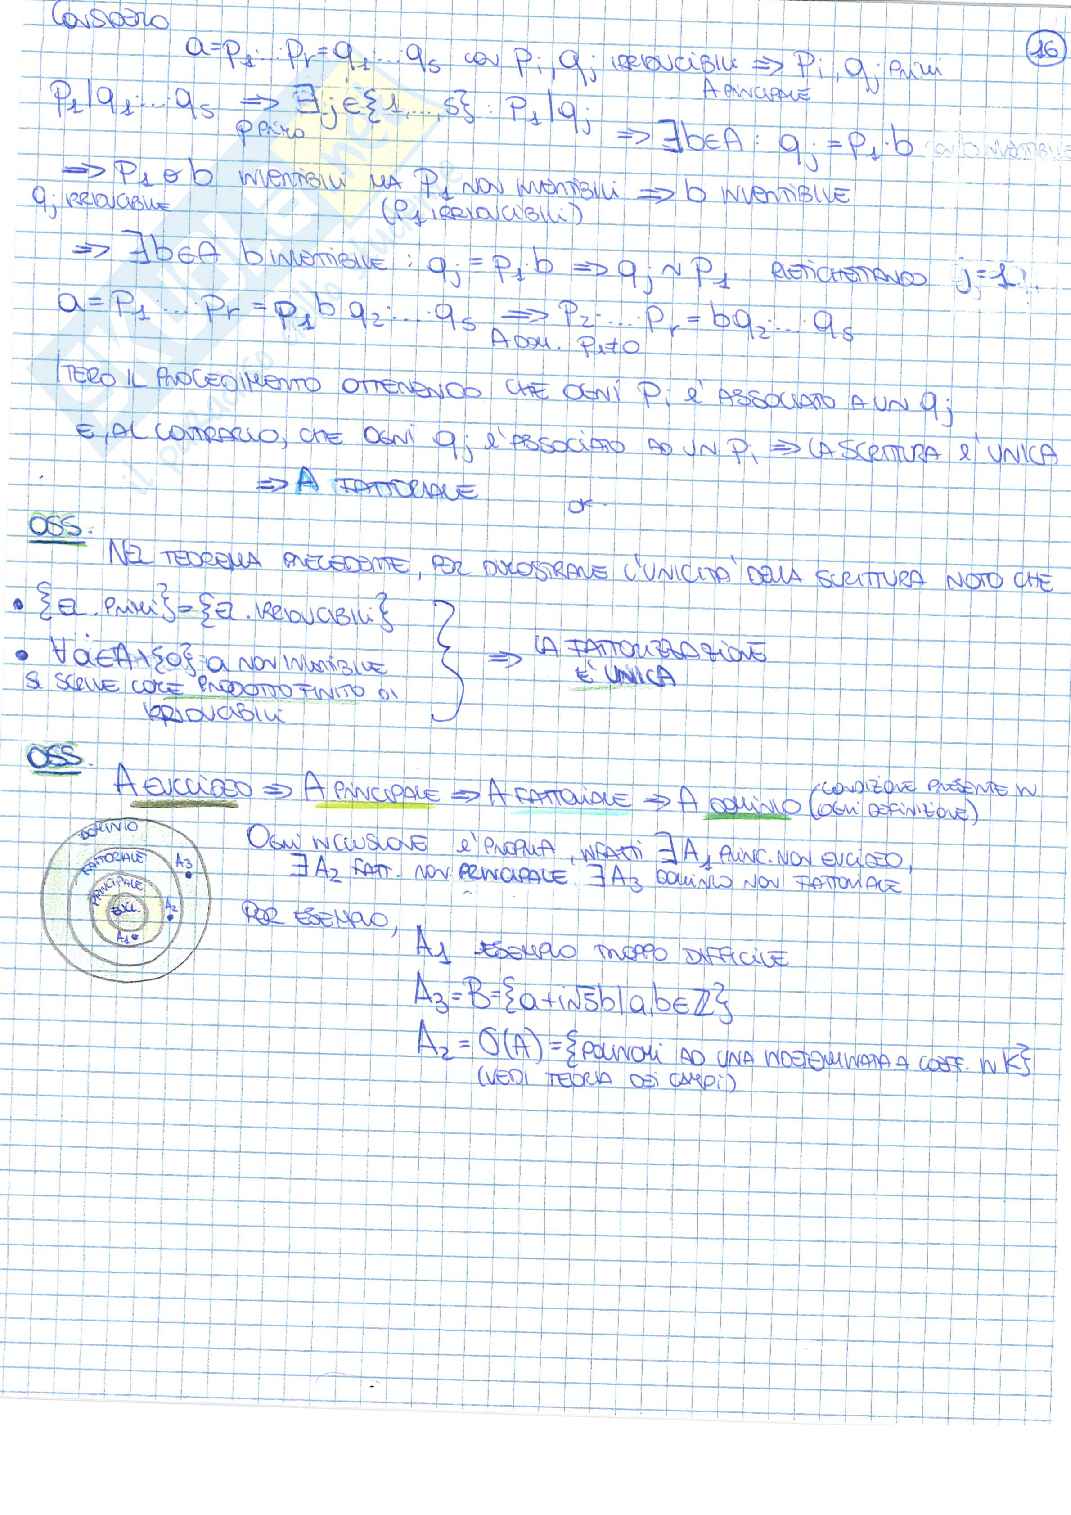 CONSIDERO
16
a=p₁...pᵣ=q₁...qₛ con pᵢ,qⱼ IRRIDUCIBILI ⇒ pᵢ,qⱼ PRIMI
A PRINCIPALE
p₁|q₁...qₛ ⇒ ∃j∈{1,...,s} : p₁|qⱼ
p PRIMO
⇒ ∃b∈A : qⱼ=p₁·b
⇒ p₁ o b INVERTIBILI MA p₁ NON INVERTIBILI ⇒ b INVERTIBILE
qⱼ IRRIDUCIBILE (p₁ IRRIDUCIBILI)
⇒ ∃b∈A b INVERTIBILE : qⱼ=p₁·b ⇒ qⱼ~p₁ RIETICHETTANDO j=1:
a=p₁...pᵣ=p₁bq₂...qₛ ⇒ p₂...pᵣ=bq₂...qₛ
A DOM. p₁≠0
ITERO IL PROCEDIMENTO OTTENENDO CHE OGNI pᵢ E' ASSOCIATO A UN qⱼ
E, AL CONTRARIO, CHE OGNI qⱼ E' ASSOCIATO AD UN pᵢ ⇒ LA SCRITTURA E' UNICA
⇒ A FATTORIALE
OK
OSS.
NEL TEOREMA PRECEDENTE, PER DIMOSTRARE L'UNICITA' DELLA SCRITTURA NOTO CHE
• {el. PRIMI}={el. IRRIDUCIBILI}
• ∀a∈A\{0} : a NON INVERTIBILE
SI SCRIVE COME PRODOTTO FINITO DI
IRRIDUCIBILI
⇒ LA FATTORIZZAZIONE
E' UNICA
OSS.
A EUCLIDEO ⇒ A PRINCIPALE ⇒ A FATTORIALE ⇒ A DOMINIO (CONDIZIONE PRESENTE IN
OGNI DEFINIZIONE)
DOMINIO
FATTORIALE
PRINCIPALE
EUCL.
A₁
A₂
A₃
OGNI INCLUSIONE E' PROPRIA, INFATTI ∃A₁ PRINC. NON EUCLIDEO,
∃A₂ FATT. NON PRINCIPALE. ∃A₃ DOMINIO NON FATTORIALE
PER ESEMPIO,
A₁ ESEMPIO TROPPO DIFFICILE
A₃=B={a+i√5b|a,b∈ℤ}
A₂=O(A)={POLINOMI AD UNA INDETERMINATA A COEFF. IN K}
(VEDI TEORIA DEI CAMPI)